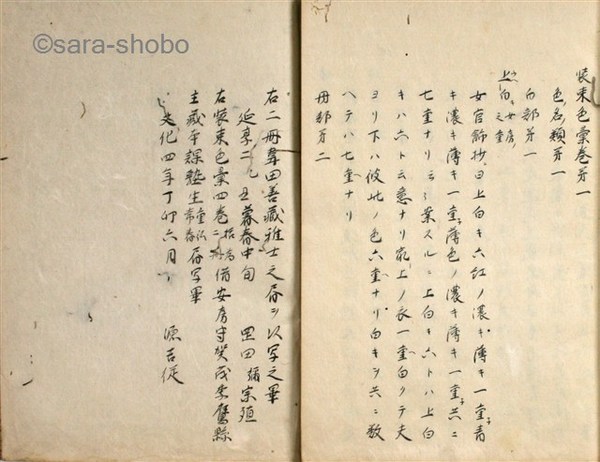 ©sara-shobo
装束色彙巻第一
色名類第一
白部第一
上白 女房之重
女官飾抄曰上白キ六紅ノ濃キ薄キ一重青
キ濃キ薄キ一重薄色ノ濃キ薄キ一重共ニ
七重ナリ案スルニ上白キ六トハ上白
キハ六ト云意ナリ最上ノ衣一重白クテ夫
ヨリ下ハ彼此ノ色六重ナリ白キヲ共ニ数
ヘテハ七重ナリ
丹部第二
右二冊 田善蔵雅士之 以写之畢
延享二乙丑暮春中旬 岡田 宗
右装束色彙四巻 借安房守
主蔵本 塾生 写畢
文化四年丁卯六月 源吉従